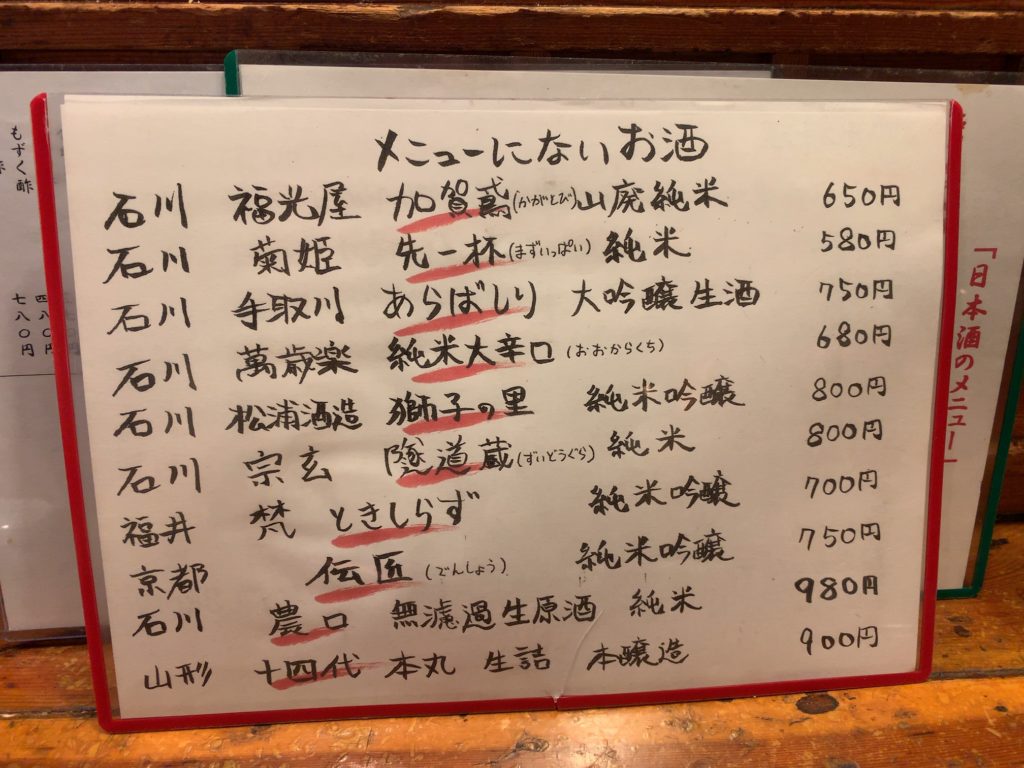 メニューにないお酒
石川 福光屋 加賀鳶(かがとび)山廃純米 650円
石川 菊姫 先一杯(まずいっぱい) 純米 580円
石川 手取川 あらばしり 大吟醸生酒 750円
石川 萬歳楽 純米大辛口(おおからくち) 680円
石川 松浦酒造 獅子の里 純米吟醸 800円
石川 宗玄 隧道蔵(ずいどうぐら) 純米 800円
福井 梵 ときしらず 純米吟醸 700円
京都 伝匠(でんしょう) 純米吟醸 750円
石川 農口 無濾過生原酒 純米 980円
山形 十四代 本丸 生詰 本醸造 900円
「日本酒のメニュー」
もずく酢
四八〇円
七八〇円